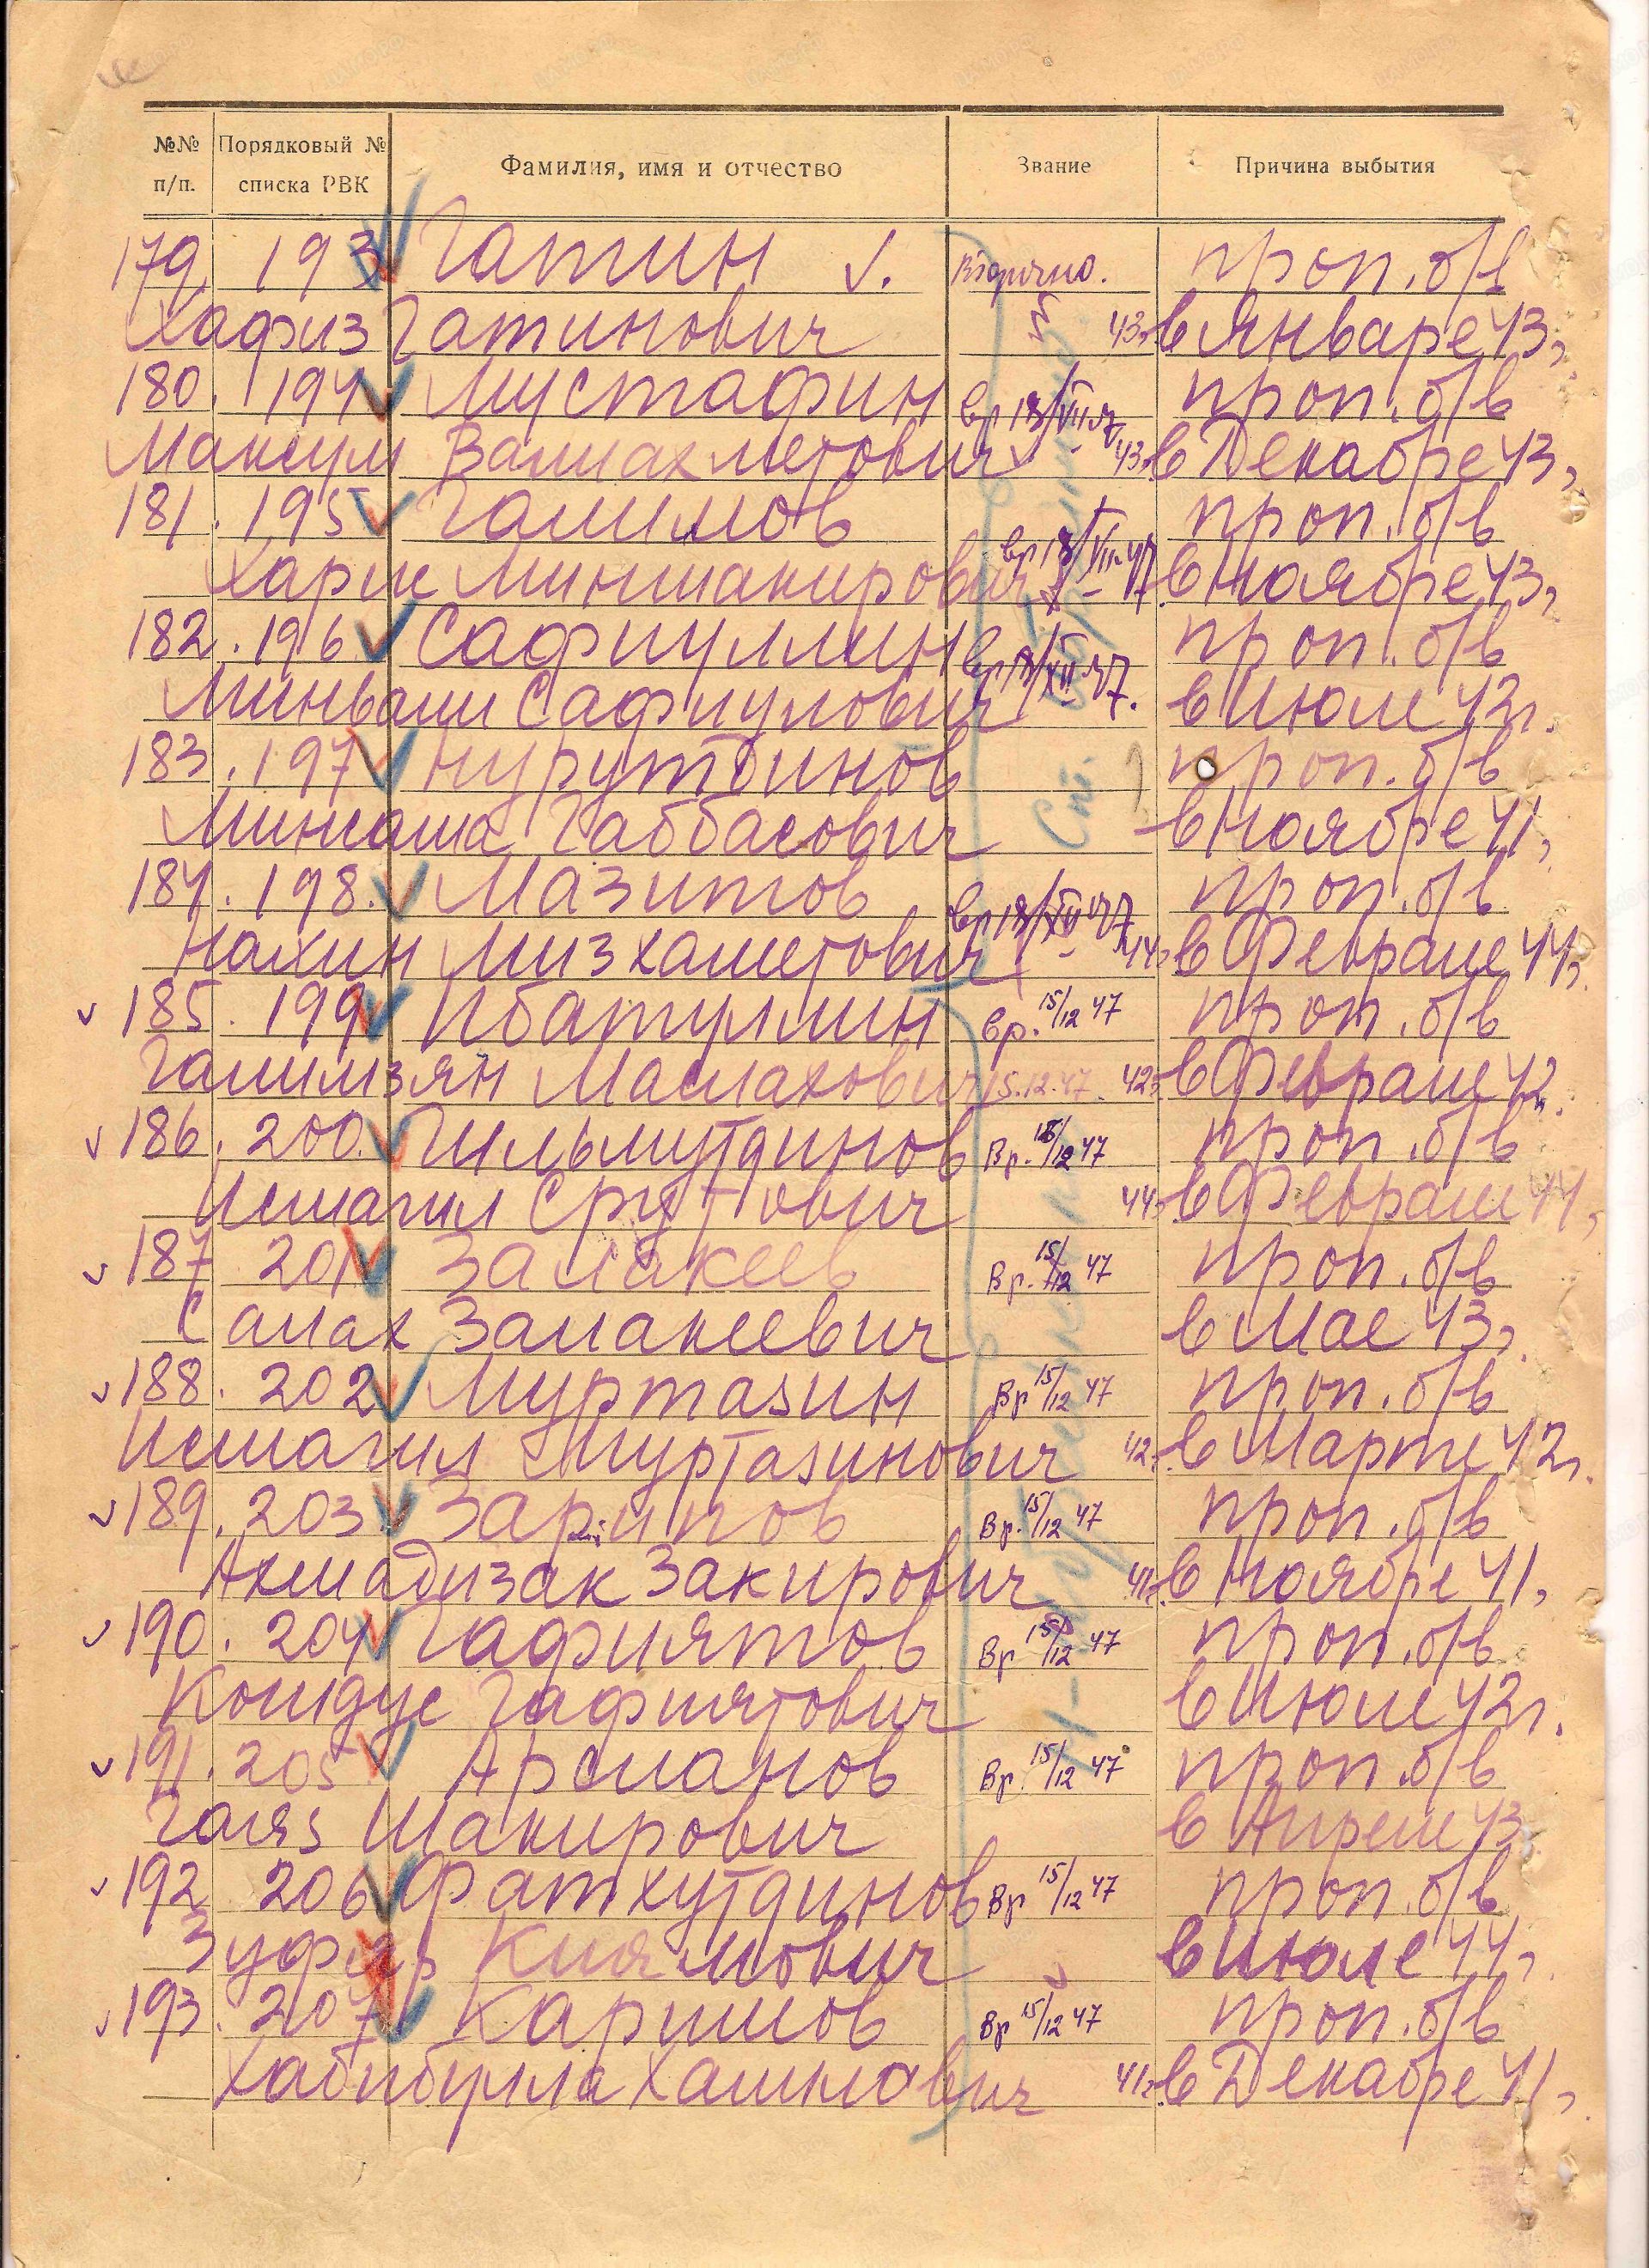 №№ п/п. Порядковый № списка РВК Фамилия, имя и отчество Звание Причина выбытия
179. 193 Гатин Вторично. проп. б/в
Хафиз Гатинович 43г в Январе 43г
180. 194 Мустафин вр 18/XII 47 проп. б/в
Максум Валиахметович 43г в Декабре 43г
181. 195 Галимов вр 18/XII 47 проп. б/в
Харис Миншакирович в Ноябре 43г
182. 196. Сафиуллин вр 18/XII 47. проп. б/в
Минвали Сафиулович в Июле 42г.
183. 197 Нурутдинов проп. б/в
Миннаша Габбасович в Ноябре 41г
184. 198. Мазитов вр 18/XII 47 проп. б/в
Нахип Мизхаметович 44г в Феврале 44г.
185. 199 Ибатуллин вр. 15/12 47 проп. б/в
Галимзян Маслахович 15.12.47. 42г в Феврале 42.
186. 200. Гильмутдинов Вр. 15/12 47 проп. б/в
Исмагил 44г в Феврале 44г
187 201 Залакеев Вр. 15/12 47 проп. б/в
Салах Залакеевич в Мае 43г.
188. 202 Муртазин Вр 15/12 47 проп. б/в
Исмагил Муртазинович 42г. в Марте 42г.
189. 203. Зарипов Вр. 15/12 47 проп. б/в
Ахмадизак Закирович 41г. в Ноябре 41г
190. 204 Гафиятов Вр 15/12 47 проп. б/в
Колдус Гафиятович в Июле 42г.
191. 205 Арсланов Вр. 15/12 47 проп. б/в
Галяз Шакирович в Апреле 43
192 206 Фатхутдинов Вр 15/12 47 проп. б/в
Зуфар Киямович в Июле 44г
193. 207 Каримов Вр 15/12 47 проп. б/в
Хабибулла Халилович 41г. в Декабре 41г